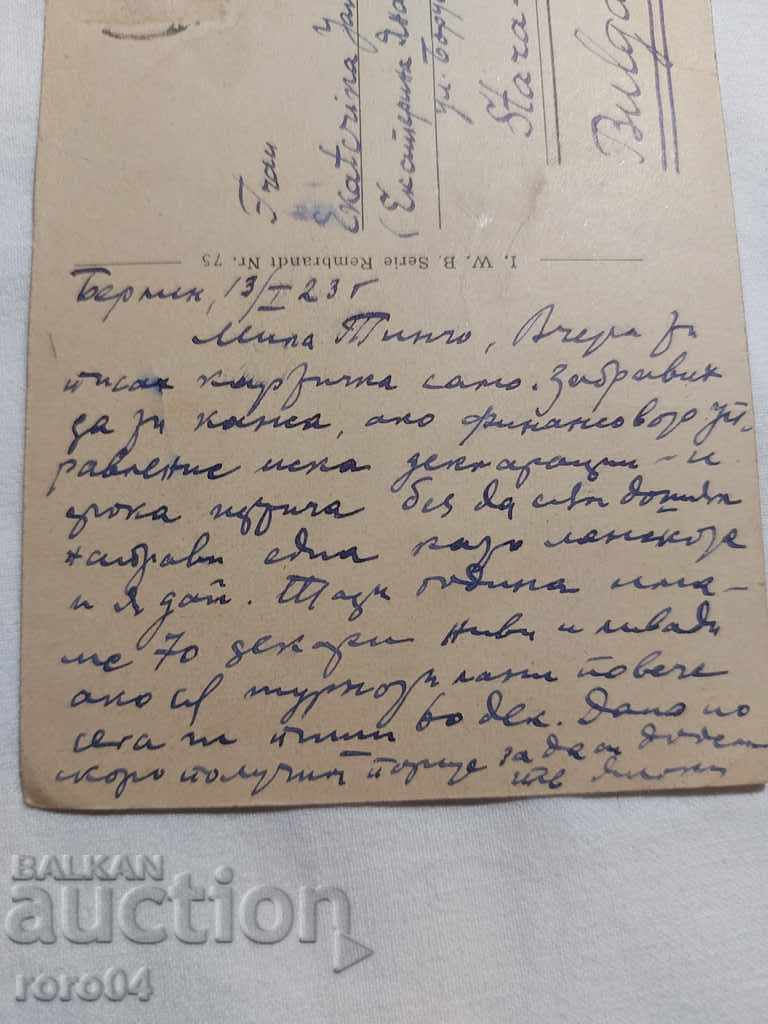 Frau
Ekaterina
(Екатерина
ул.
Stara-
Bulga
I. W. B. Serie Rembrandt Nr. 75
Берлин, 13/I 23 г
Мила Тинчо, Вчера ти
писах картичка само. Забравих
да ти кажа, ако финансовото уп-
равление иска декларации - и
срока изтича без да съм дошъл
направи една като ланската
и я дай. Тази година има-
ме 70 декари ниви и ливади
ако са турнати лани повече
сега ги пиши 60 дек. Дано по
скоро получим парите за да си дойдем
BALKAN
auction
roro04